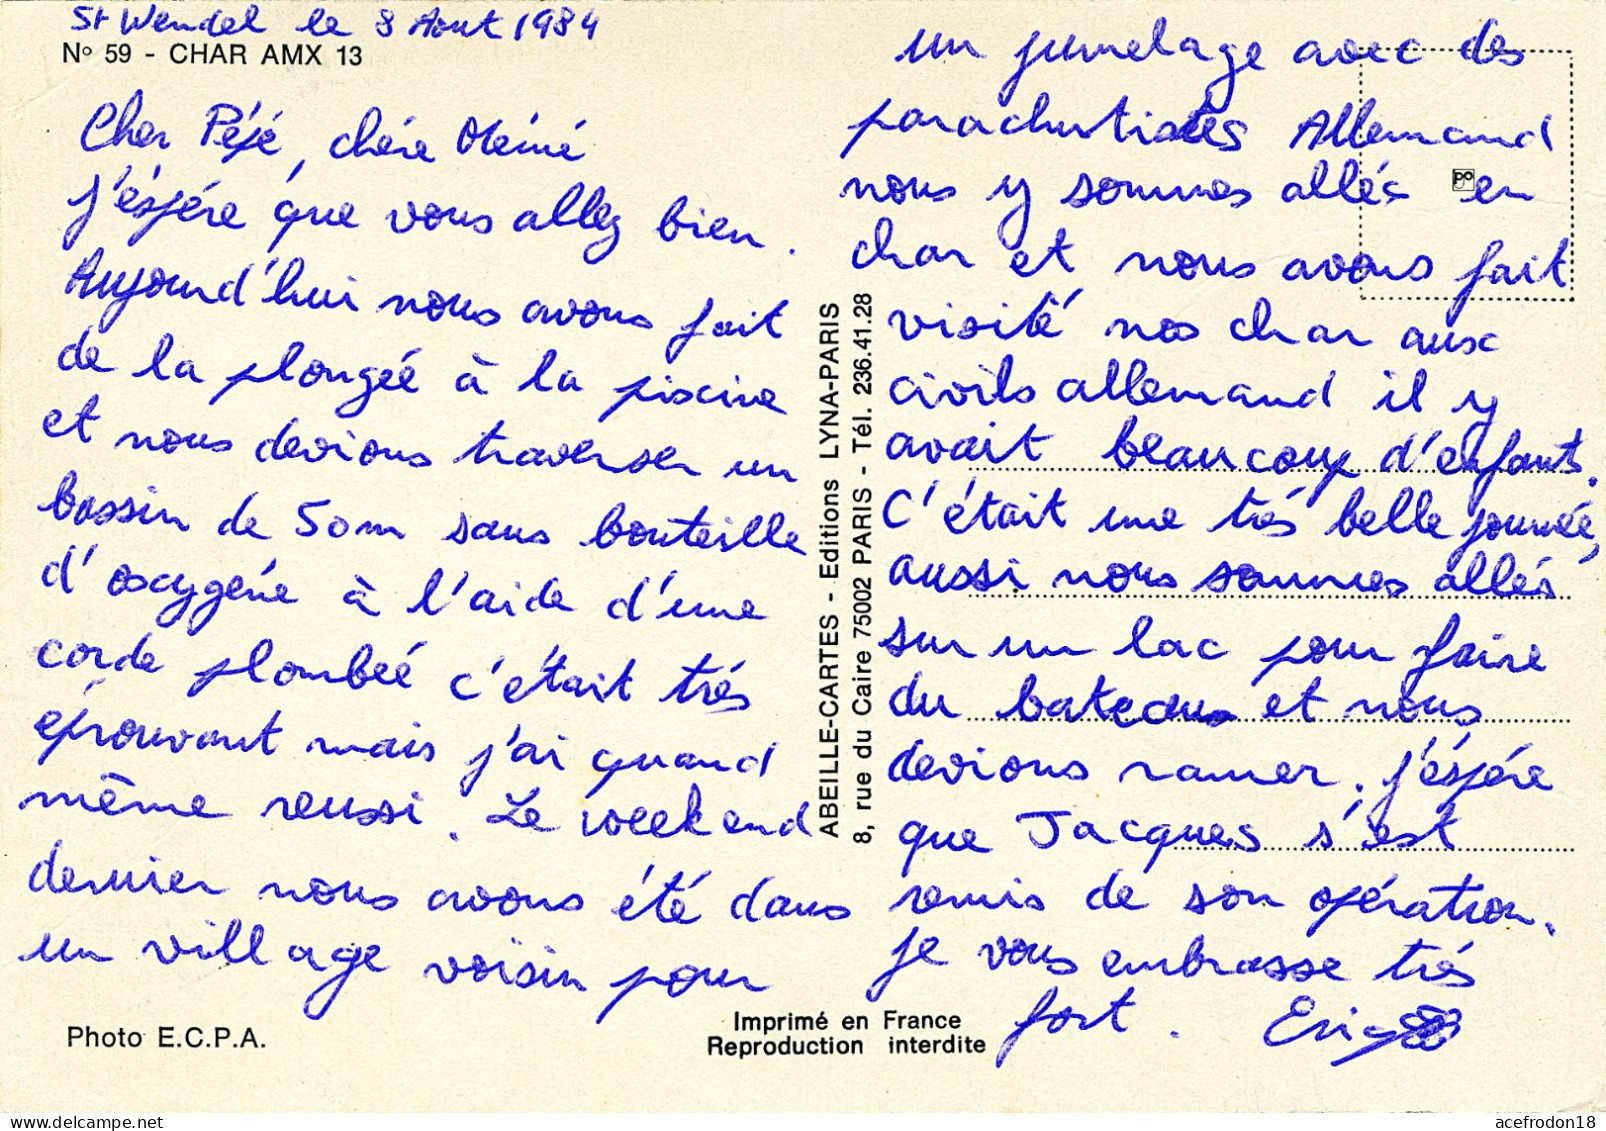 St Wendel le 8 Aout 1984
N° 59 - CHAR AMX 13
Cher Pépé, chére Mémé
j'éspére que vous allez bien.
Aujourd'hui nous avons fait
de la plongéé à la piscine
et nous devions traverser un
bassin de 50m sans bouteille
d'oxygéne à l'aide d'une
corde plombéé c'était trés
éprouvant mais j'ai quand
même reussi. Le week end
dernier nous avons été dans
un village voisin pour
Photo E.C.P.A.
ABEILLE-CARTES - Editions LYNA-PARIS
8, rue du Caire 75002 PARIS - Tél. 236.41.28
Imprimé en France
Reproduction interdite
un jumelage avec des
parachutistes Allemand
nous y sommes allés en
char et nous avons fait
visité nos char aux
civils allemand il y
avait beaucoup d'enfants.
C'était une trés belle journéé,
aussi nous sommes allés
sur un lac pour faire
du bateaus et nous
devions ramer. j'éspére
que Jacques s'est
remis de son opération.
je vous embrasse trés
fort. Eric
po
acefrodon18